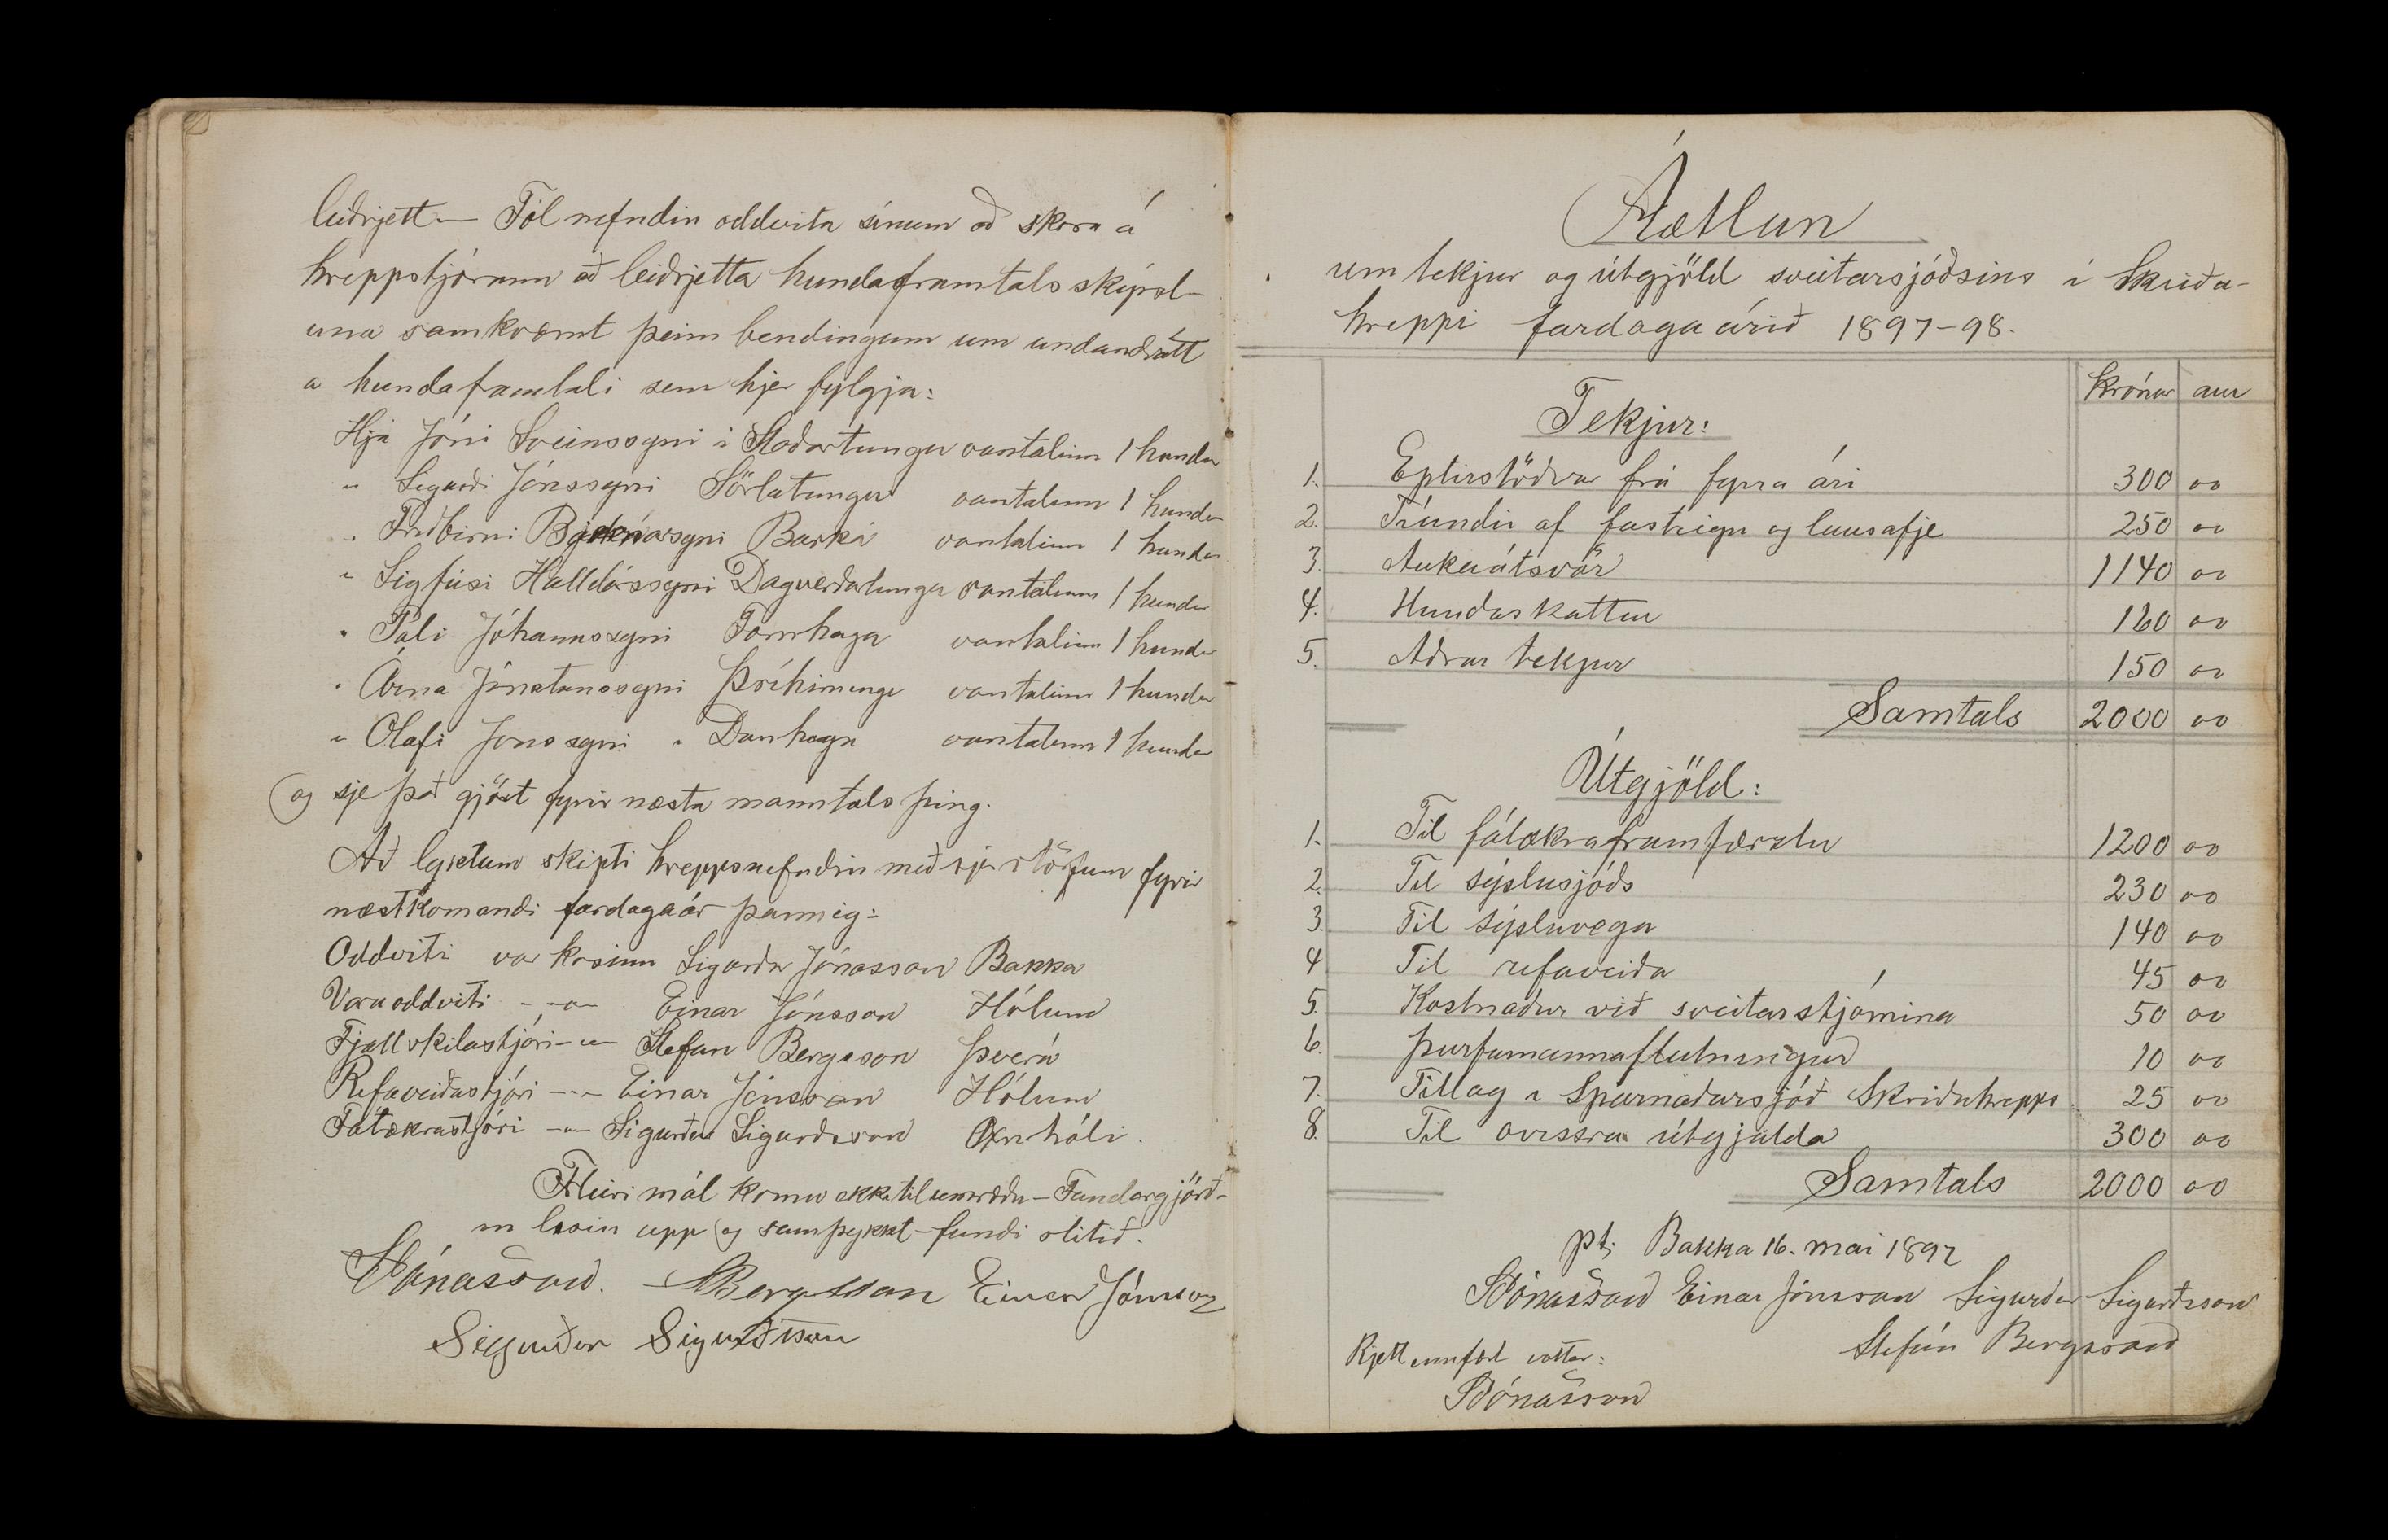 leiðrjett — Fól nefndin oddvita sínum að skora á
hreppstjórann að leiðrjetta hundaframtals skýrsl-
una samkvæmt þeim bendingum um undandrátt
a hundaframtali sem hjer fylgja:
Hjá Jóni Sveinssyni í Staðartungu vantalinn 1 hundur
" Sigurði Jónssyni Sörlatungu vantalinn 1 hundur
" Friðbirni Barká vantalinn 1 hundur
" Sigfúsi Halldórssyni Dagverðartungu vantalinn 1 hundur
" Páli Jóhannssyni Fornhaga vantalinn 1 hundur
" Árna Jónatanssyni Þríhirningi vantalinn 1 hundur
" Olafi Jonssyni " Dunhaga vantalinn 1 hundur
og sje það gjört fyrir næsta manntals þing.
Að lyktum skipti hreppsnefndin með sjer störfum fyrir
næstkomandi fardagaár þannig:
Oddviti var kosinn Sigurður Jónasson Bakka
Varaoddviti - -"- Einar Jónsson Hólum
Fjallskilastjóri -"- Stefan Bergsson Þverá
Refaveiðastjóri -"- Einar Jónsson Hólum
Fátækrastjóri -"- Sigurður Sigurðsson Öxnhóli.
Fleiri mál komu ekki til umræðu — Fundargjörð-
in lesin upp og samþykkt – fundi slitið.
SJónasson. SBergsson Einar Jónsson
Sigurður Sigurðsson
Áætlun
um tekjur og útgjöld sveitarsjóðsins í Skriðu-
hreppi fardagaárið 1897-98.
Krónur aur
Tekjur:
1. Eptirstöðvar frá fyrra ári 300 00
2. Tíundir af fasteign og lausafje 250 00
3. Aukaútsvör 1140 00
4. Hundaskattur 160 00
5. Aðrar tekjur 150 00
Samtals 2000 00
Útgjöld:
1. Til fátækraframfærslu 1200 00
2. Til sýslusjóðs 230 00
3. Til sýsluvega 140 00
4 Til refaveiða 45 00
5. Kostnaður við sveitarstjórnina 50 00
6. Þurfamannaflutningur 10 00
7. Tillag í Sparnaðarsjóð Skriðuhrepps 25 00
8. Til óvissra útgjalda 300 00
Samtals 2000 00
pt; Bakka 16. mai 1897
SJónasson Einar Jónsson Sigurður Sigurðsson
Stefán Bergsson
Rjett innfært vottar:
SJónasson